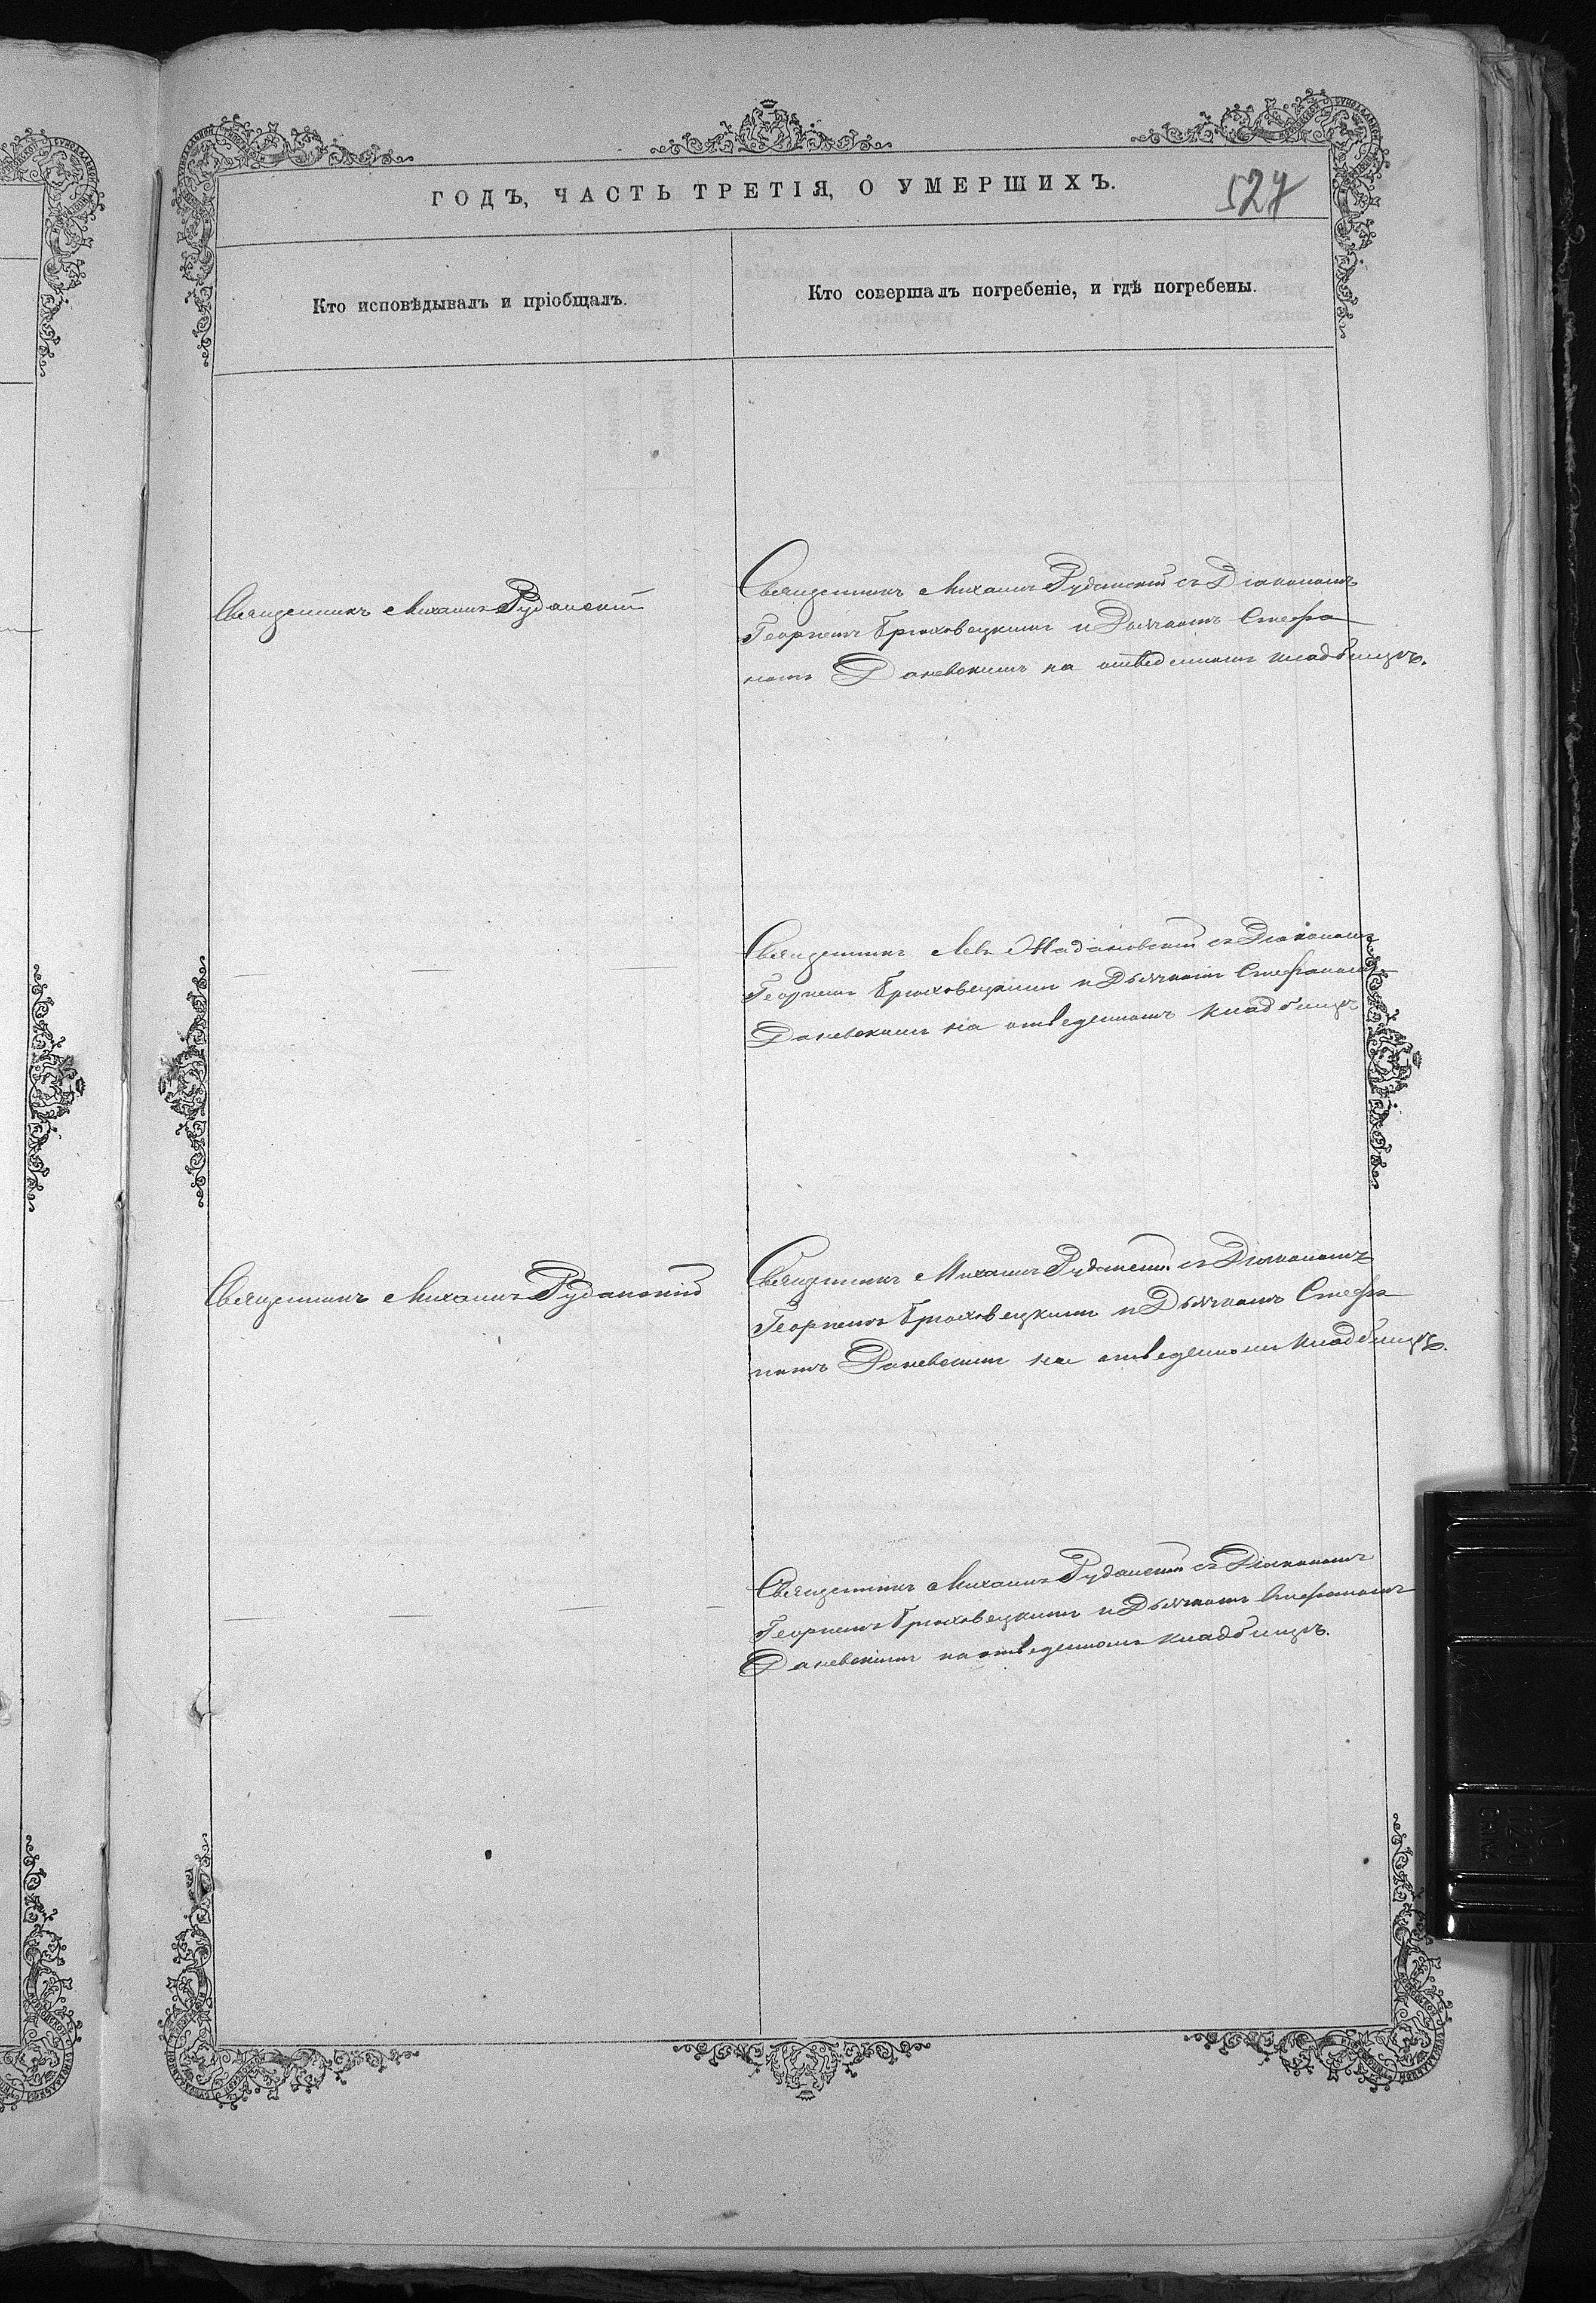 ГОДЪ, ЧАСТЬ ТРЕТІЯ, О УМЕРШИХЪ.
527
Кто исповѣдывалъ и пріобщалъ.
Кто совершалъ погребеніе, и гдѣ погребены.
Священникъ Михаилъ Руданскій
Священникъ Михаилъ Руданскій съ Діакономъ
Георгіемъ Брюховецкимъ и Дьячкомъ Стефа
номъ Даневскимъ на отведенномъ кладбищѣ.
Священникъ Левъ съ Діакономъ
Георгіемъ Брюховецкимъ и Дьячкомъ Стефаномъ
Даневскимъ на отведенномъ кладбищѣ
Священникъ Михаилъ Руданскій
Священникъ Михаилъ Руданскій съ Діакономъ
Георгіемъ Брюховецкимъ и Дьячкомъ Стефа
номъ Даневскимъ на отведенномъ кладбищѣ.
Священникъ Михаилъ Руданскій съ Діакономъ
Георгіемъ Брюховецкимъ и Дьячкомъ Стефаномъ
Даневскимъ на отведенномъ кладбищѣ.